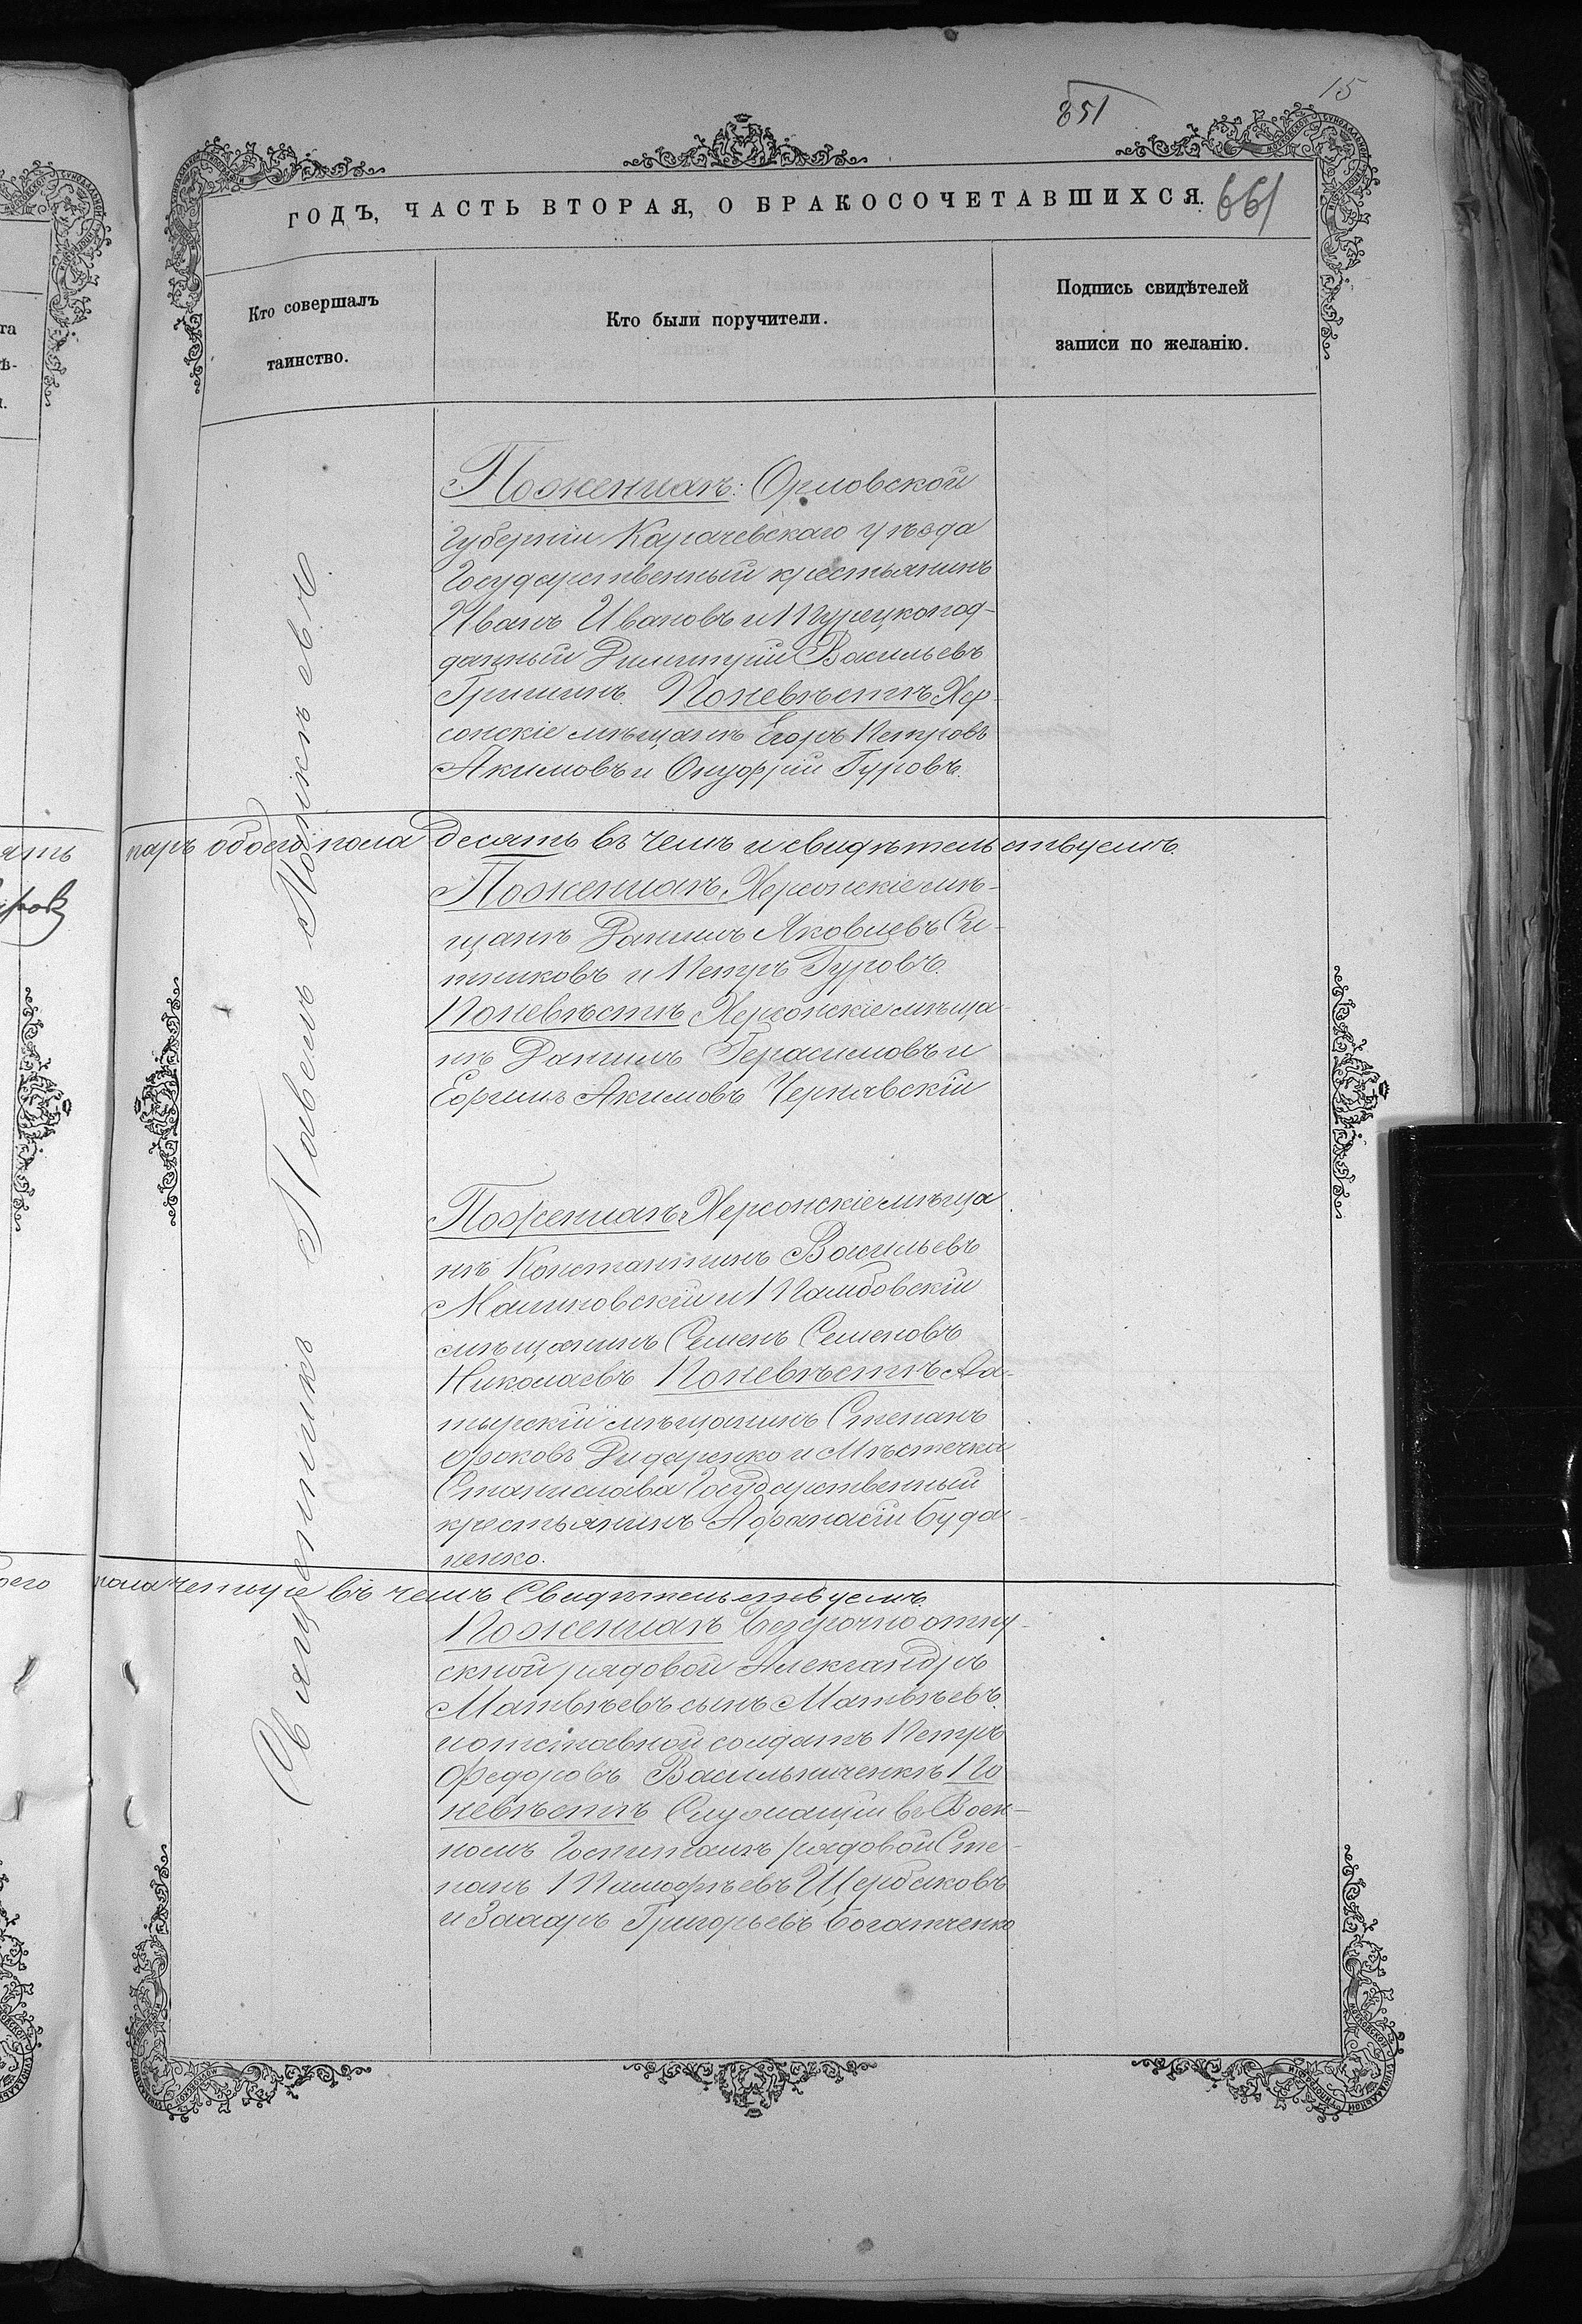 15
851
ГОДЪ, ЧАСТЬ ВТОРАЯ, О БРАКОСОЧЕТАВШИХСЯ.
661
Кто совершалъ
таинство.
Кто были поручители.
Подпись свидѣтелей
записи по желанію.
Священникъ Павелъ
По женихѣ: Орловской
губерніи Карачевскаго уѣзда
Государственный крестьянинъ
Иванъ Ивановъ и Турецкопод-
данный Димитрій Васильевъ
Гришинъ. По невѣстѣ Хер-
сонскіе мѣщане Егоръ Петровъ
Акимовъ и Онуфрій Гуровъ.
паръ обоего пола десять въ чемъ и свидѣтельствуемъ.
По женихѣ Херсонскіе мѣ-
щане Данилъ Яковлевъ Си-
тниковъ и Петръ Гуровъ.
По невѣстѣ Херсонскіе мѣща-
не Данилъ Герасимовъ и
Акимовъ Чернявскій
По женихѣ Херсонскіе мѣща-
не Константинъ Васильевъ
Малиновскій и Тамбовскій
мѣщанинъ Семенъ Семеновъ
Николаевъ По невѣстѣ Ала-
тырскій мѣщанинъ Степанъ
Дидаренко и Мѣстечка
Станислава Государственный
крестьянинъ Афанасій Буда-
ненко.
пола четыре въ чемъ Свидѣтельствуемъ.
По женихѣ безсрочно отпу-
скной рядовой Александръ
Матвѣевъ сынъ Матвѣевъ
и отставной солдатъ Петръ
Федоровъ Василь По
невѣстѣ Служащій въ Воен-
номъ Госпиталѣ рядовой Сте-
панъ Тимофѣевъ Щербаковъ
и Захаръ Григорьевъ Богатченко